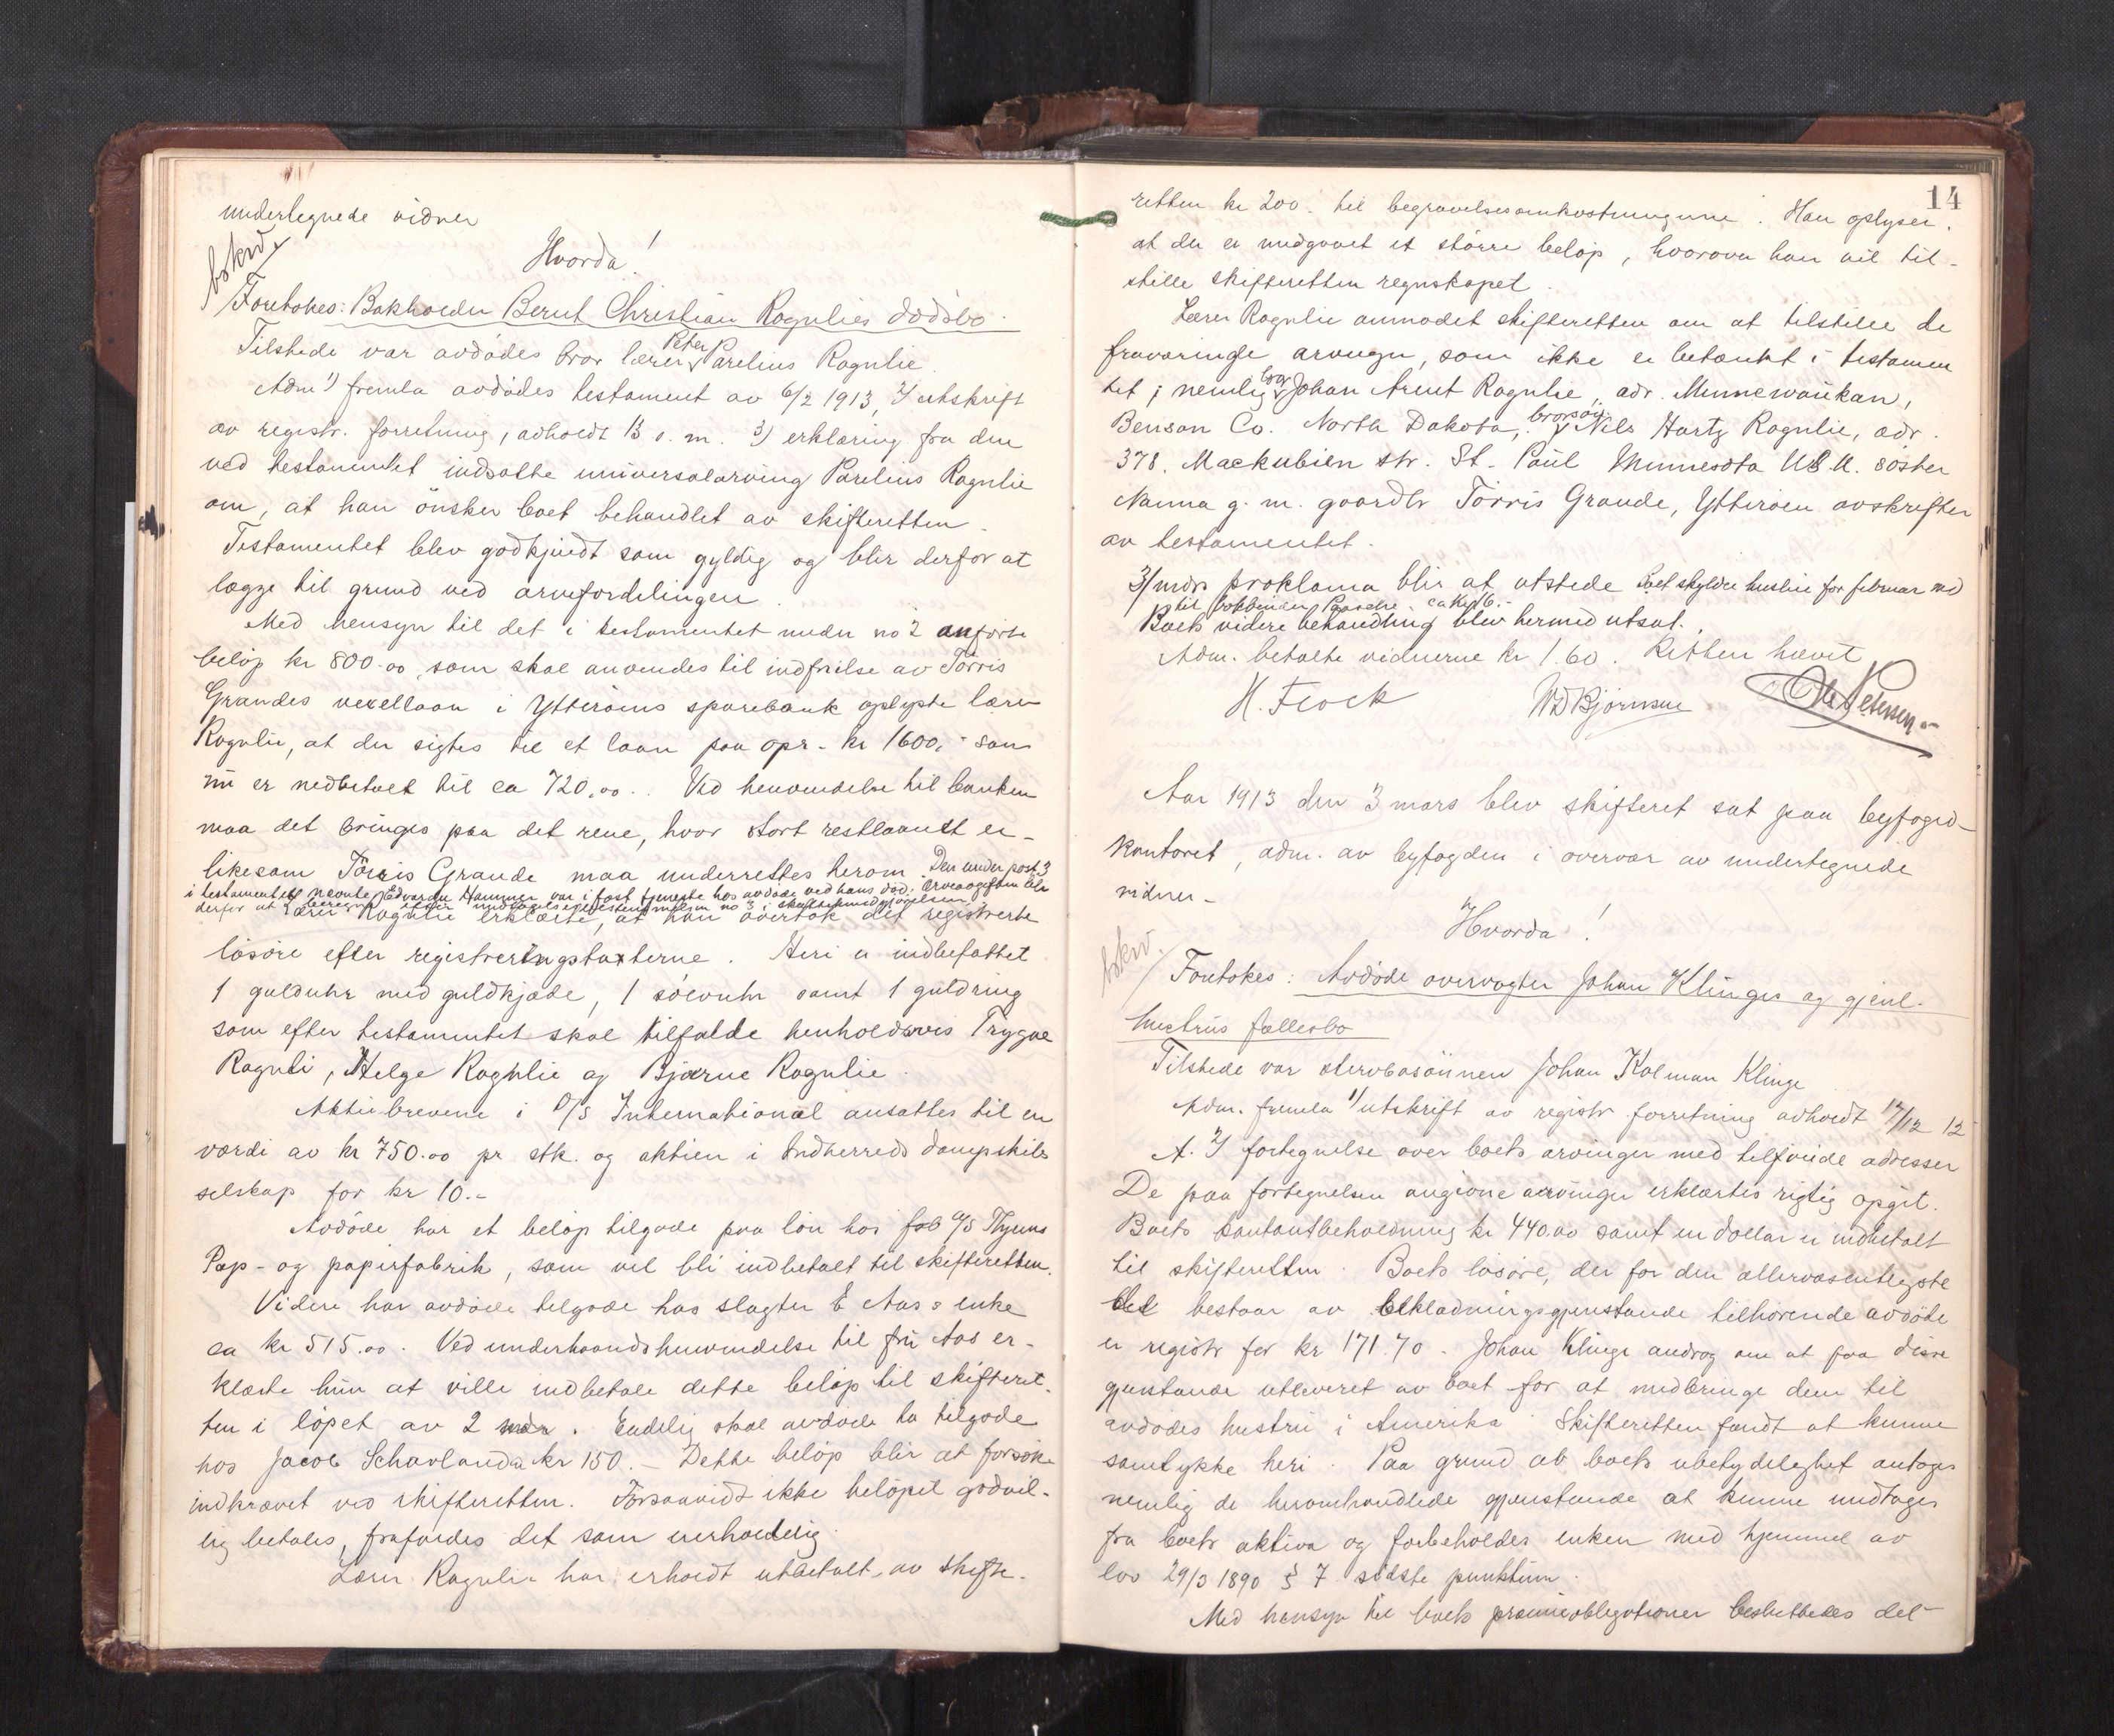 undertegnede vidner
bskrv
Hvorda!
Foretokes: Bokholder Bernt Christian Rognlies dødsbo.
Tilstede var avdødes bror lærer Peter Parelius Rognlie.
Adm 1) fremla avdødes testament av 6/2 1913, 2) utskrift
av registr. forretning, avholdt 13 d. m. 3) erklæring fra den
ved testamentet indsatte universalarving Parelius Rognlie
om, at han ønsker boet behandlet av skifteretten.
Testamentet blev godkjendt som gyldig og blir derfor at
lægge til grund ved arvefordelingen.
Med hensyn til det i testamentet under no 2 anførte
beløp kr 800.00, som skal anvendes til indfrielse av Törris
Grandes vexellaan i Ytterøens sparebank oplyste lærer
Rognlie, at der sigtes til et laan paa opr. kr 1600,- som
nu er nedbetalt til ca 720,00. Ved henvendelse til banken
maa det bringes paa det rene, hvor stort restlaanet er-
likesom Törris Grande maa underrettes herom. Den under post 3
i testamentet nevnte Edvarda Hammer var i fast tjeneste hos avdøde ved hans død. Arveavgiften blir
derfor at beregne efter no 3 i
Lærer Rognlie erklærte, at han overtok det registrerte
løsøre efter registreringstaxterne. Heri er indbefattet
1 gulduhr med guldkjæde, 1 sølvuhr samt 1 guldring
som efter testamentet skal tilfalde henholdsvis Trygve
Rognli, Helge Rognlie og Bjarne Rognlie.
Aktiebrevene i D/S International ansattes til en
værdi av kr 750.00 pr stk. og aktien i Indherreds dampskibs
selskap for kr 10.-
Avdøde har et beløp tilgode paa løn hos fab A/S
Pap- og papirfabrik, som vil bli indbetalt til skifteretten.
Videre har avdøde tilgode hos slagter E Aas's enke
ca kr 515.00. Ved underhaandshenvendelse til fru Aas er-
klærte hun at ville indbetale dette beløp til skifteret-
ten i løpet av 2 mdr. Endelig skal avdøde ha tilgode
hos Jacob Schavlanda kr 150.- Dette beløp blir at forsøke
indkrævet ved skifteretten. Forsaavidt ikke beløpet godvil-
lig betales, frafaldes det som uerholdelig.
Lærer Rognlie har erholdt utbetalt av skifte-
14
retten kr 200.- til begravelsesomkostningerne. Han oplyser,
at der er medgaaet et større beløp, hvorover han vil til-
stille skifteretten regnskapet.
Lærer Rognlie anmodet skifteretten om at tilstille de
fraværende arvinger, som ikke er betænkt i testamen
tet, nemlig bror Johan Arent Rognlie, adr. Minnewaukan,
Benson Co. North Dakota, brorsøn Nils Hartz Rognlie, adr.
378. Mackubien str. St. Paul Minnesota U.S.A. søster
Nanna g. m. gaardbr Törris Grande, Ytterøen avskrifter
av testamentet.
3 mdrs proklama blir at utstede Boet skylder husleie for februar md
til bokbinder Paasche ca kr 16.-
Boets videre behandling blev hermed utsat.
Adm. betalte vidnerne kr 1.60. Retten hævet
H. Flock WD Bjørnsen Ole Petersen
Aar 1913 den 3 mars blev skifteret sat paa byfogd-
kontoret, adm. av byfogden i overvær av undertegnede
vidner-
Hvorda!
bskrv.
Foretokes: Avdøde overvogter Johan Klinges og gjenl.
hustrus fællesbo
Tilstede var stervbosønnen Johan Kolman Klinge
Adm. fremla 1) utskrift av registr forretning avholdt 17/12 12
A. 2) fortegnelse over boets arvinger med tilføiede adresser
De paa fortegnelsen angivne arvinger erklærtes rigtig opgit.
Boets kontantbeholdning kr 440.00 samt en dollar er indbetalt
til skifteretten. Boets løsøre, der for den allervæsentligste
del bestaar av beklædningsgjenstande tilhørende avdøde
er registr for kr 171.70. Johan Klinge androg om at faa disse
gjenstande utleveret av boet for at medbringe dem til
avdødes hustru i Amerika. Skifteretten fandt at kunne
samtykke heri. Paa grund av boets ubetydelighet antages
nemlig de heromhandlede gjenstande at kunne undtages
fra boets aktiva og forbeholdes enken med hjemmel av
lov 29/3 1890 § 7 sidste punktum.
Med hensyn til boets præmieobligationer besluttedes det